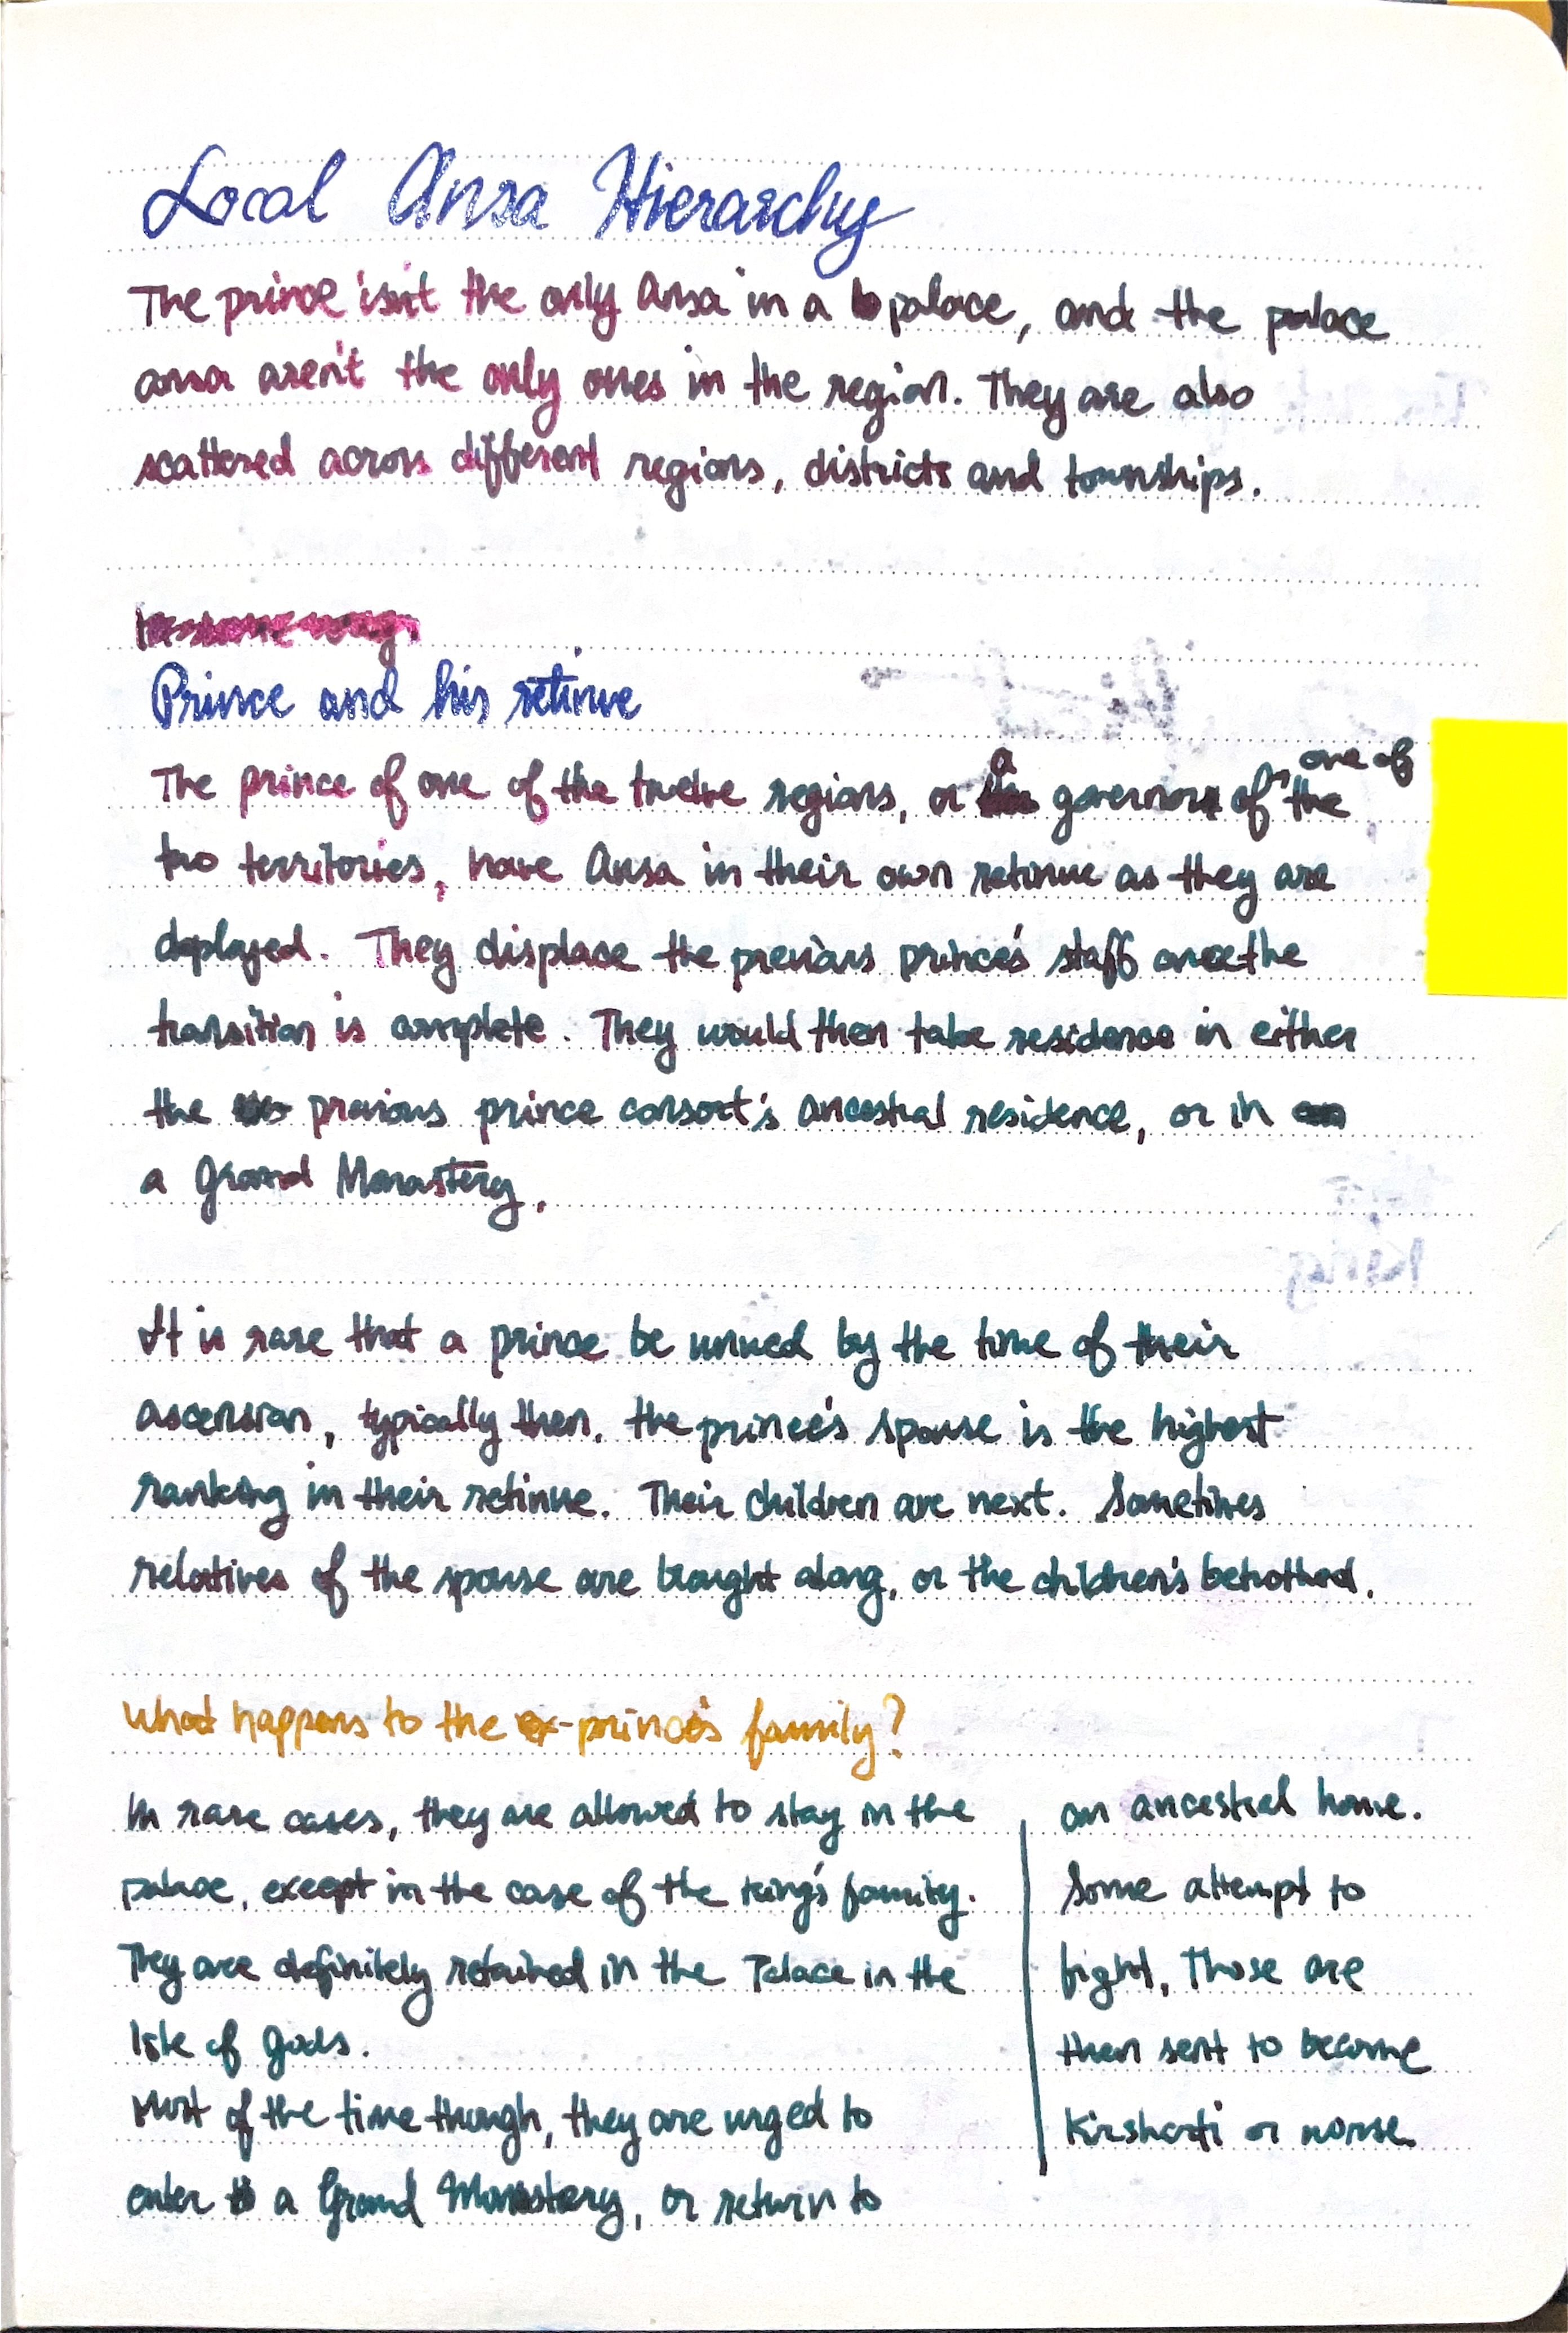 Local Ansa Hierarchy
The prince isn't the only Ansa in a palace, and the palace
ansa aren't the only ones in the region. They are also
scattered across different regions, districts and townships.
Prince and his retinue
The prince of one of the twelve regions, or a governor of one of the
two territories, have Ansa in their own retinue as they are
deployed. They displace the previous prince's staff once the
transition is complete. They would then take residence in either
the previous prince consort's ancestral residence, or in
a Grand Monastery.
It is rare that a prince be unwed by the time of their
ascension, typically then, the prince's spouse is the highest
ranking in their retinue. Their children are next. Sometimes
relatives of the spouse are brought along, or the children's betrothed.
What happens to the ex-prince's family?
In rare cases, they are allowed to stay in the
palace, except in the case of the king's family.
They are definitely retained in the Palace in the
Isle of Gods.
Most of the time though, they are urged to
enter a Grand Monastery, or return to
an ancestral home.
Some attempt to
fight. Those are
then sent to become
Kirsharti or worse.